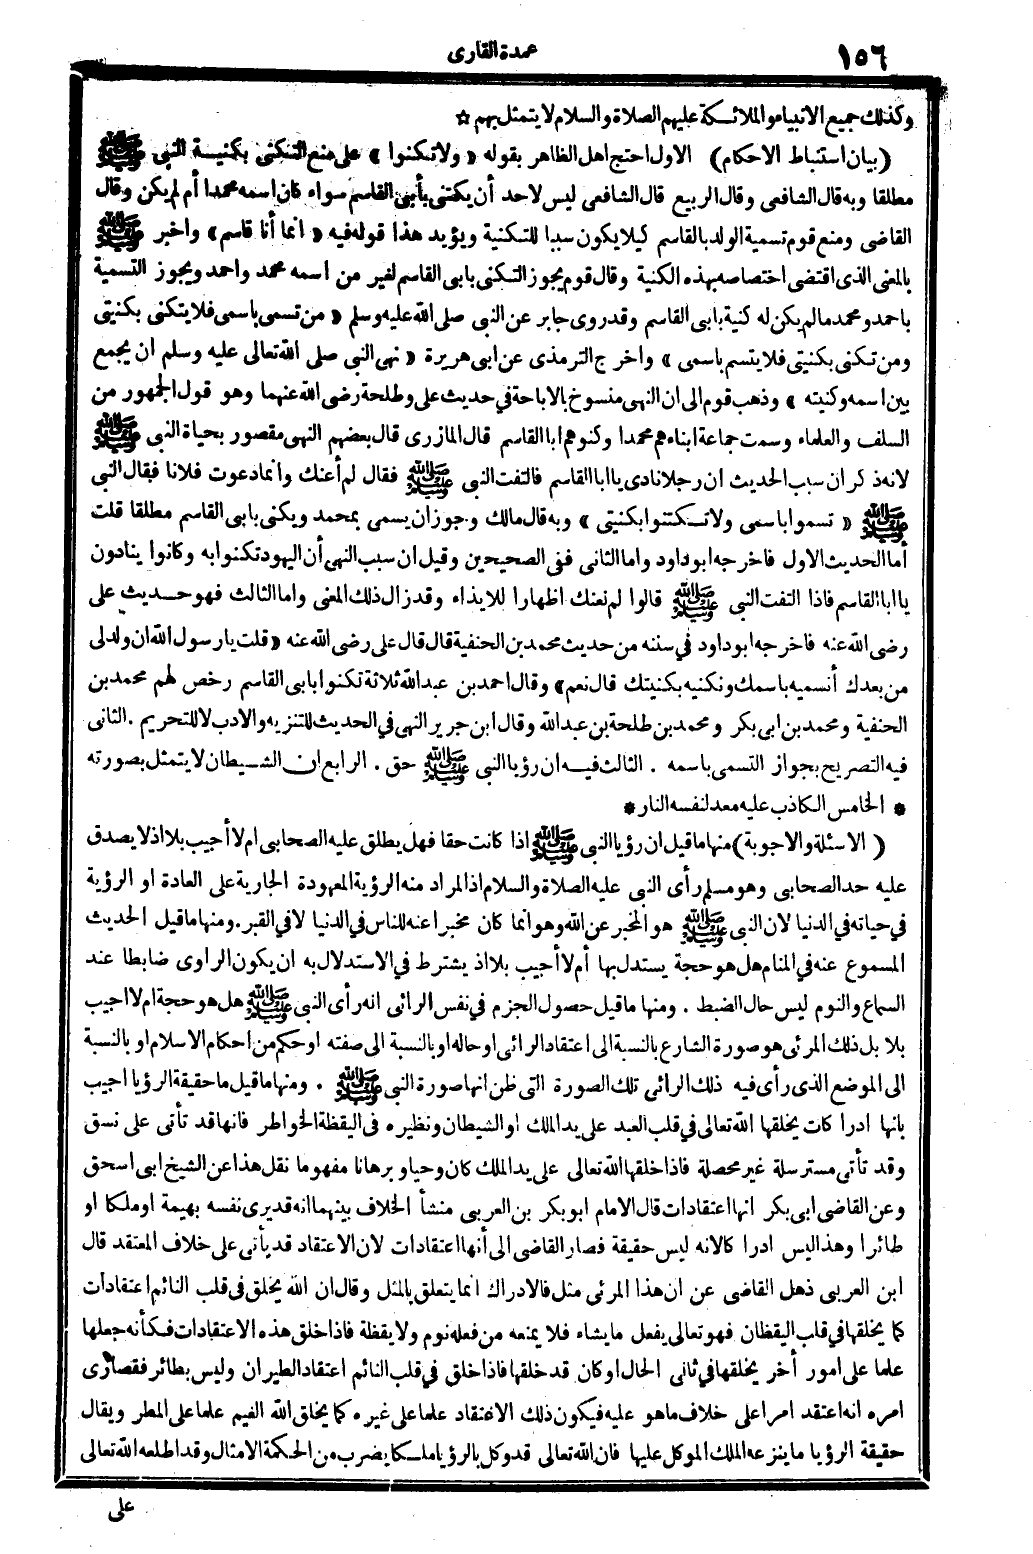 ١٥٦
عمدة القارى
وكذلك جميع الانبياء والملائكة عليهم الصلاة والسلام لا يتمثل بهم ☆
(بيان استنباط الاحكام) الاول احتج اهل الظاهر بقوله « ولا تكنوا » على منع التكنى بكنية النبى ﷺ
مطلقا وبه قال الشافعى وقال الربيع قال الشافعى ليس لاحد أن يكتنى بأبى القاسم سواء كان اسمه محمدا أم لم يكن وقال
القاضى ومنع قوم تسمية الولد بالقاسم كيلا يكون سببا للتكنية ويؤيد هذا قوله فيه « انما أنا قاسم » واخبر ﷺ
بالمعنى الذى اقتضى اختصاصه بهذه الكنية وقال قوم يجوز التكنى بابى القاسم لغير من اسمه محمد واحمد ويجوز التسمية
باحمد ومحمد مالم يكن له كنية بابى القاسم وقد روى جابر عن النبى صلى الله عليه وسلم « من تسمى باسمى فلا يتكنى بكنيتى
ومن تكنى بكنيتى فلا يتسم باسمى » واخرج الترمذى عن ابى هريرة « نهى النبى صلى الله تعالى عليه وسلم ان يجمع
بين اسمه وكنيته » وذهب قوم الى ان النهى منسوخ بالاباحة فى حديث على وطلحة رضى الله عنهما وهو قول الجمهور من
السلف والعلماء وسمت جماعة ابناءهم محمدا وكنوهم ابا القاسم قال المازرى قال بعضهم النهى مقصور بحياة النبى ﷺ
لانه ذكر ان سبب الحديث ان رجلا نادى يا ابا القاسم فالتفت النبى ﷺ فقال لم أعنك وانما دعوت فلانا فقال النبى
ﷺ « تسموا باسمى ولا تكتنوا بكنيتى » وبه قال مالك وجوز ان يسمى بمحمد ويكنى بابى القاسم مطلقا قلت
أما الحديث الاول فاخرجه ابو داود واما الثانى ففى الصحيحين وقيل ان سبب النهى أن اليهود تكنوا به وكانوا ينادون
يا ابا القاسم فاذا التفت النبى ﷺ قالوا لم نعنك اظهارا للايذاء وقد زال ذلك المعنى واما الثالث فهو حديث على
رضى الله عنه فاخرجه ابو داود فى سننه من حديث محمد بن الحنفية قال قال على رضى الله عنه « قلت يا رسول الله ان ولد لى
من بعدك أنسميه باسمك ونكنيه بكنيتك قال نعم » وقال احمد بن عبد الله ثلاثة تكنوا بابى القاسم رخص لهم محمد بن
الحنفية ومحمد بن ابى بكر ومحمد بن طلحة بن عبد الله وقال ابن جرير النهى فى الحديث للتنزيه والادب لا للتحريم . الثانى
فيه التصريح بجواز التسمى باسمه . الثالث فيه ان رؤيا النبى ﷺ حق . الرابع ان الشيطان لا يتمثل بصورته
* الخامس الكاذب عليه معد لنفسه النار *
( الاسئلة والاجوبة ) منها ما قيل ان رؤيا النبى ﷺ اذا كانت حقا فهل يطلق عليه الصحابى ام لا أجيب بلا اذ لا يصدق
عليه حد الصحابى وهو مسلم رأى النبى عليه الصلاة والسلام اذ المراد منه الرؤية المعهودة الجارية على العادة او الرؤية
فى حياته فى الدنيا لان النبى ﷺ هو المخبر عن الله وهو انما كان مخبرا عنه للناس فى الدنيا لا فى القبر . ومنها ما قيل الحديث
المسموع عنه فى المنام هل هو حجة يستدل بها أم لا أجيب بلا اذ يشترط فى الاستدلال به ان يكون الراوى ضابطا عند
السماع والنوم ليس حال الضبط . ومنها ما قيل حصول الجزم فى نفس الرائى انه رأى النبى ﷺ هل هو حجة ام لا اجيب
بلا بل ذلك المرئى هو صورة الشارع بالنسبة الى اعتقاد الرائى او حاله او بالنسبة الى صفته او حكم من احكام الاسلام او بالنسبة
الى الموضع الذى رأى فيه ذلك الرائى تلك الصورة التى ظن انها صورة النبى ﷺ . ومنها ما قيل ما حقيقة الرؤيا اجيب
بانها ادراكات يخلقها الله تعالى فى قلب العبد على يد الملك او الشيطان ونظيره فى اليقظة الخواطر فانها قد تأتى على نسق
وقد تأتى مسترسلة غير محصلة فاذا خلقها الله تعالى على يد الملك كان وحيا وبرهانا مفهوما نقل هذا عن الشيخ ابى اسحق
وعن القاضى ابى بكر انها اعتقادات قال الامام ابو بكر بن العربى منشأ الخلاف بينهما انه قد يرى نفسه بهيمة او ملكا او
طائرا وهذا ليس ادراكا لانه ليس حقيقة فصار القاضى الى أنها اعتقادات لان الاعتقاد قد يأتى على خلاف المعتقد قال
ابن العربى ذهل القاضى عن ان هذا المرئى مثل فالادراك انما يتعلق بالمثل وقال ان الله يخلق فى قلب النائم اعتقادات
كما يخلقها فى قلب اليقظان فهو تعالى يفعل ما يشاء فلا يمنعه من فعله نوم ولا يقظة فاذا خلق هذه الاعتقادات فكأنه جعلها
علما على امور أخر يخلقها فى ثانى الحال او كان قد خلقها فاذا خلق فى قلب النائم اعتقاد الطيران وليس بطائر فقصارى
امره انه اعتقد امرا على خلاف ما هو عليه فيكون ذلك الاعتقاد علما على غيره كما يخلق الله الغيم علما على المطر ويقال
حقيقة الرؤيا ما ينزعه الملك الموكل عليها فان الله تعالى قد وكل بالرؤيا ملكا يضرب من الحكمة الامثال وقد اطلعه الله تعالى
على